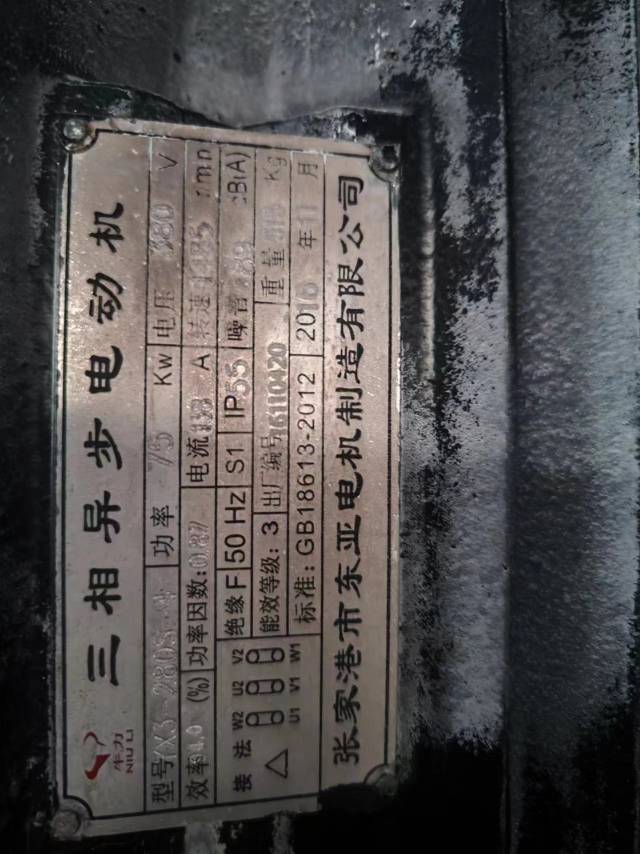 牛力
NIU LI
三相异步电动机
型号YX3-280S-4 功率 75 Kw 电压 380 V
效率94.0 (%) 功率因数:0.87 电流 A 转速 r/min
接 法 绝缘 F 50 Hz S1 IP55 噪音 dB(A)
△ W2 U2 V2 能效等级: 3 出厂编号16110420 重量 Kg
U1 V1 W1 标准: GB18613-2012 2016 年 11 月
张家港市东亚电机制造有限公司